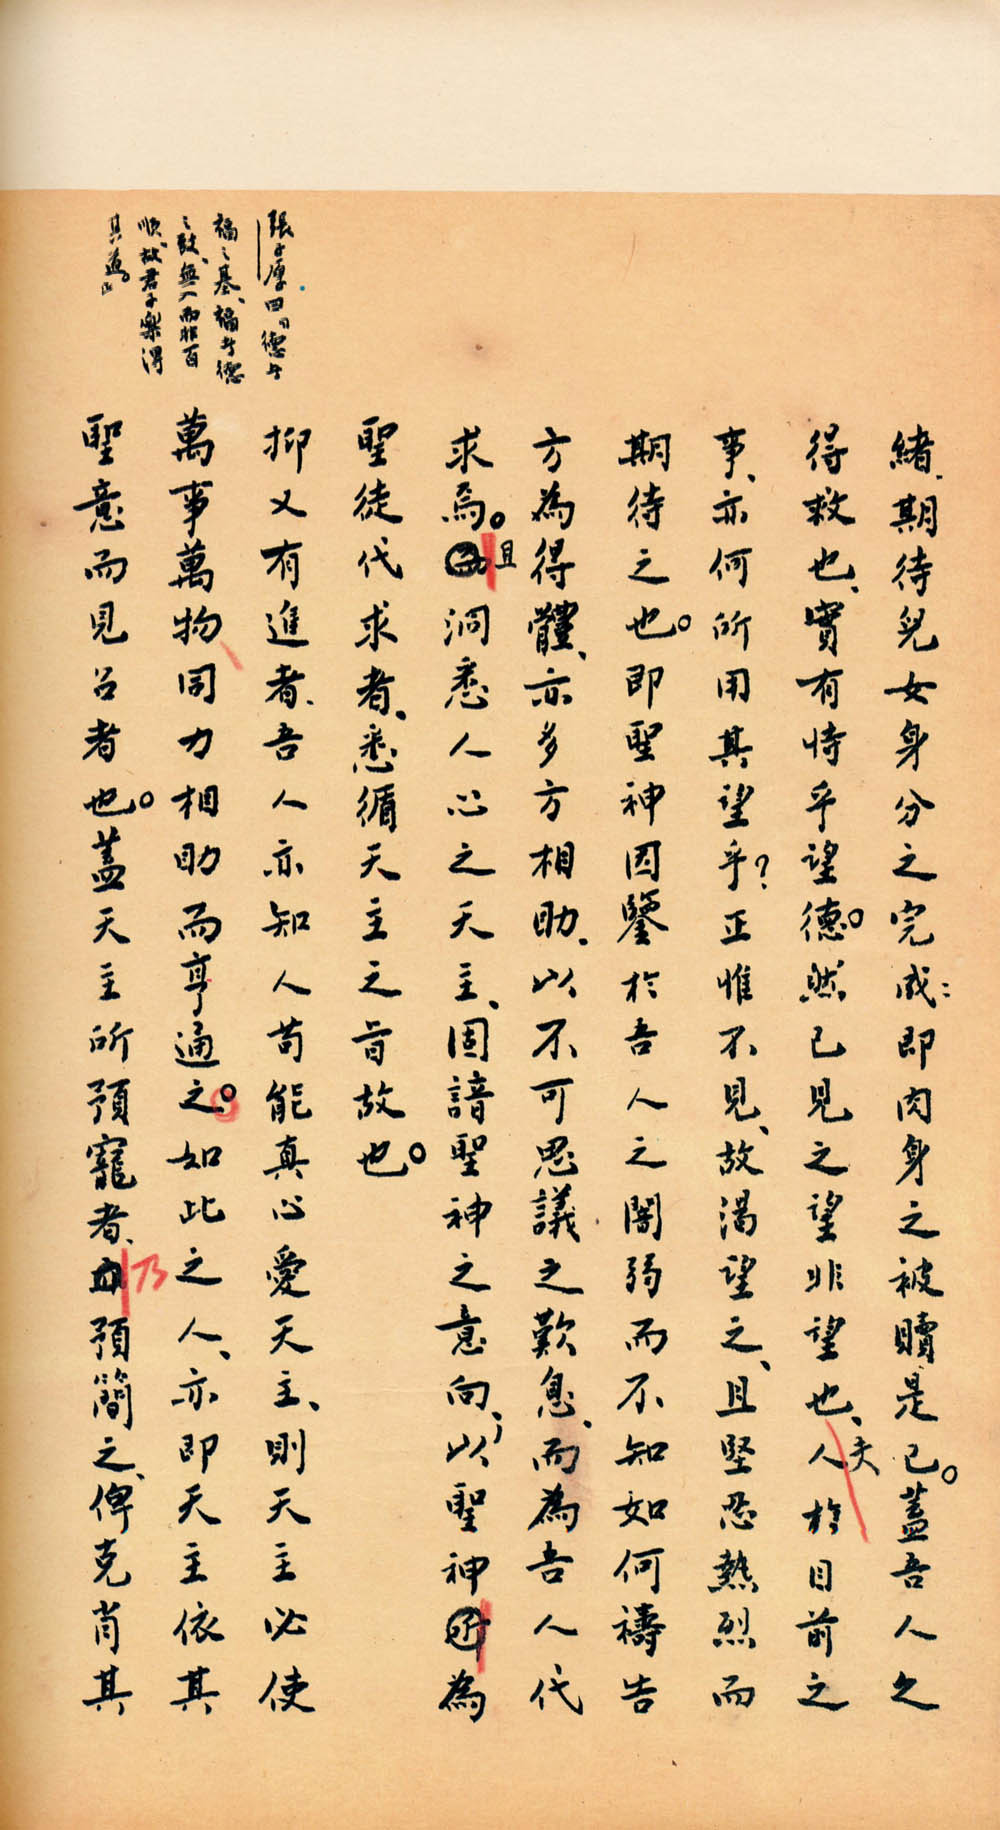 緒、期待兒女身分之完成：即肉身之被贖是已。蓋吾人之
得救也、實有恃乎望德。然已見之望非望也、夫人於目前之
事、亦何所用其望乎？正惟不見、故渴望之、且堅忍熱烈而
期待之也。即聖神因鑒於吾人之闇弱而不知如何禱告
方為得體、亦多方相助、以不可思議之歎息、而為吾人代
求焉。且洞悉人心之天主、固諳聖神之意向、以聖神所為
聖徒代求者、悉循天主之旨故也。
抑又有進者、吾人亦知人苟能真心愛天主、則天主必使
萬事萬物同力相助而亨通之。如此之人、亦即天主依其
聖意而見召者也。蓋天主所預寵者、乃預簡之、俾克肖其
張子厚曰「德者
福之基、福者德
之致、無入而非百
順、故君子樂得
其道。」